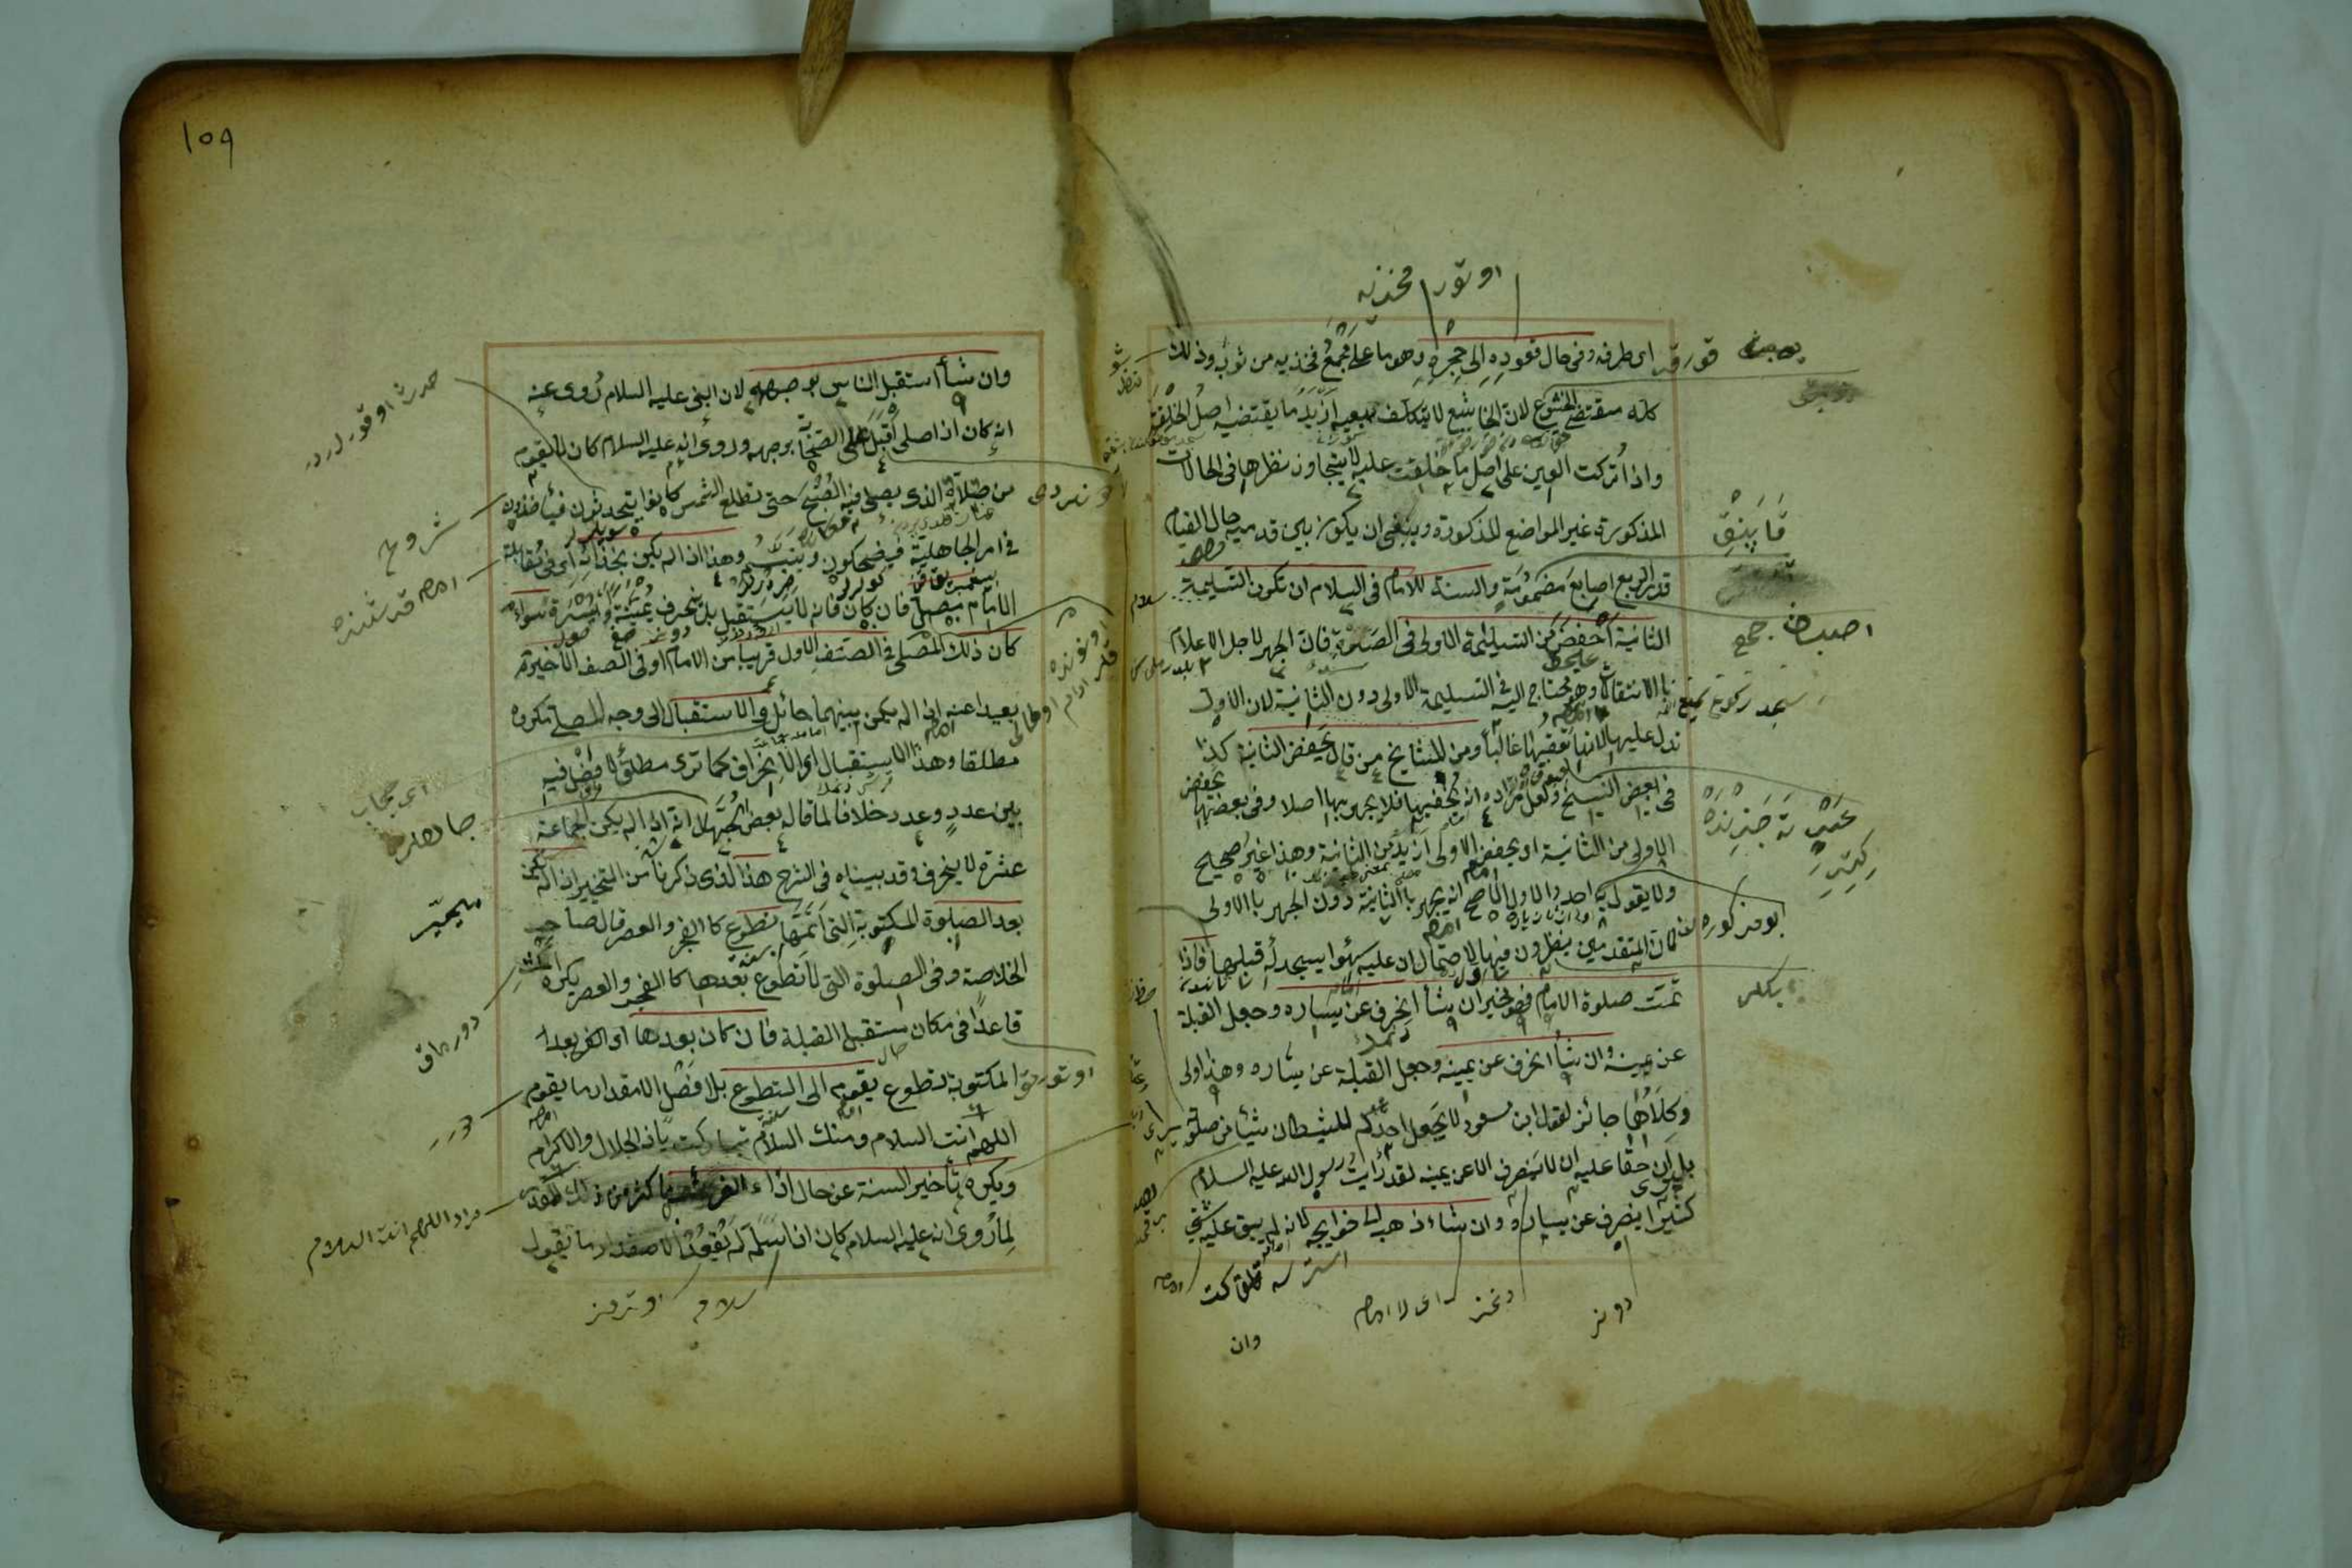 اوتور مخذنه
اى طرفه وفى حال قعوده الى حجره وهو ما على مجمع فخذيه من ثوب وذلك
كله مقتضى الخشوع لان الخاشع لا يتكلف بعينه ازيد ما يقتضيه اصل الخلقة
واذا تركت العين على اصل ما خلقت عليه لا يتجاوز نظرها فى الحالات
المذكورة غير المواضع المذكورة وينبغى ان يكون بين قدميه حال القيام
قدر اربع اصابع مضمومة والسنة للامام فى السلام ان تكون التسليمة
الثانية اخفض من التسليمة الاولى فى الصلوة فان الجهر لاجل الاعلام
بالانتقالات وهو محتاج اليه فى التسليمة الاولى دون الثانية لان الاولى
تدل عليها لانها تعقبها غالبا ومن المشايخ من قال يخفض الثانية كذا
فى بعض النسخ ولعل مراده انه يخفيها فلا يجهر بها اصلا وفى بعضها يخفض
الاولى من الثانية او يخفض الاولى ازيد من الثانية وهذا غير صحيح
ولا يقول به احد والاول الاصح انه يجهر بالثانية دون الجهر بالاولى
كان المتقدمين ينظرون فيها لاحتمال ان عليه سهوا يسجد له قبلها فاذا
تمت صلوة الامام فهو مخير ان شأ انحرف عن يساره وجعل القبلة
عن يمينه وان شأ انحرف عن يمينه وجعل القبلة عن يساره وهذا اولى
وكلاهما جائز لقول ابن مسعود لا يجعل احدكم للشيطان شيأ من صلوته
بل ان حقا عليه ان لا ينصرف الا عن يمينه لقد رأيت رسول الله عليه السلام
كثيرا ينصرف عن يساره وان شاء ذهب الى حوايجه لانه لم يبق عليه شئ
وان
قورقه
قابنق
اصبع جمع
ابو مذكوره
سلام
١٥٩
وان شأ استقبل الناس بوجهه لان النبى عليه السلام روى عنه
انه كان اذا صلى اقبل على اصحابه بوجهه وروى انه عليه السلام كان لا يقوم
من صلاته الذى يصلى فيه الصبح حتى تطلع الشمس كانوا يتحدثون فيأخذون
فى امر الجاهلية فيضحكون ويتبسم وهذا اذا لم يكن بحذائه اى فى مقابلة
الامام مصلى فان كان فانه لا يستقبل بل ينحرف يمنة او يسرة سواء
كان ذلك المصلى فى الصف الاول قريبا من الامام او فى الصف الاخير
بعيدا عنه اذا لم يكن بينهما حائل والاستقبال الى وجه المصلى مكروه
مطلقا وهذا الاستقبال او الانحراف كما ترى مطلق لا فصل فيه
بين عدد وعدد خلافا لما قاله بعض الجهال انه اذا لم يكن الجماعة
عشرة لا ينحرف وقد بيناه فى الشرح هذا الذى ذكرنا من التخيير اذا لم يكن
بعد الصلوة المكتوبة التى اتمها تطوع كا الفجر والعصر قال صاحب
الخلاصة وفى الصلوة التى لا تطوع بعدها كا الفجر والعصر يكره
قاعدا فى مكان مستقبل القبلة فان كان بعدها او الغ بعد
المكتوبة تطوع يقوم الى التطوع بلا فصل الا مقدار ما يقوم
اللهم انت السلام ومنك السلام تباركت يا ذا الجلال والاكرام
ويكره تأخير السنة عن حال اداء الفريضة باكثر من ذلك القدر
لما روى انه عليه السلام كان اذا سلم لم يقعد الا مقدار ما يقول
شروع
اى حجاب
جاهلر
مخير
مراد اللهم انت السلام
سلام اوترمز